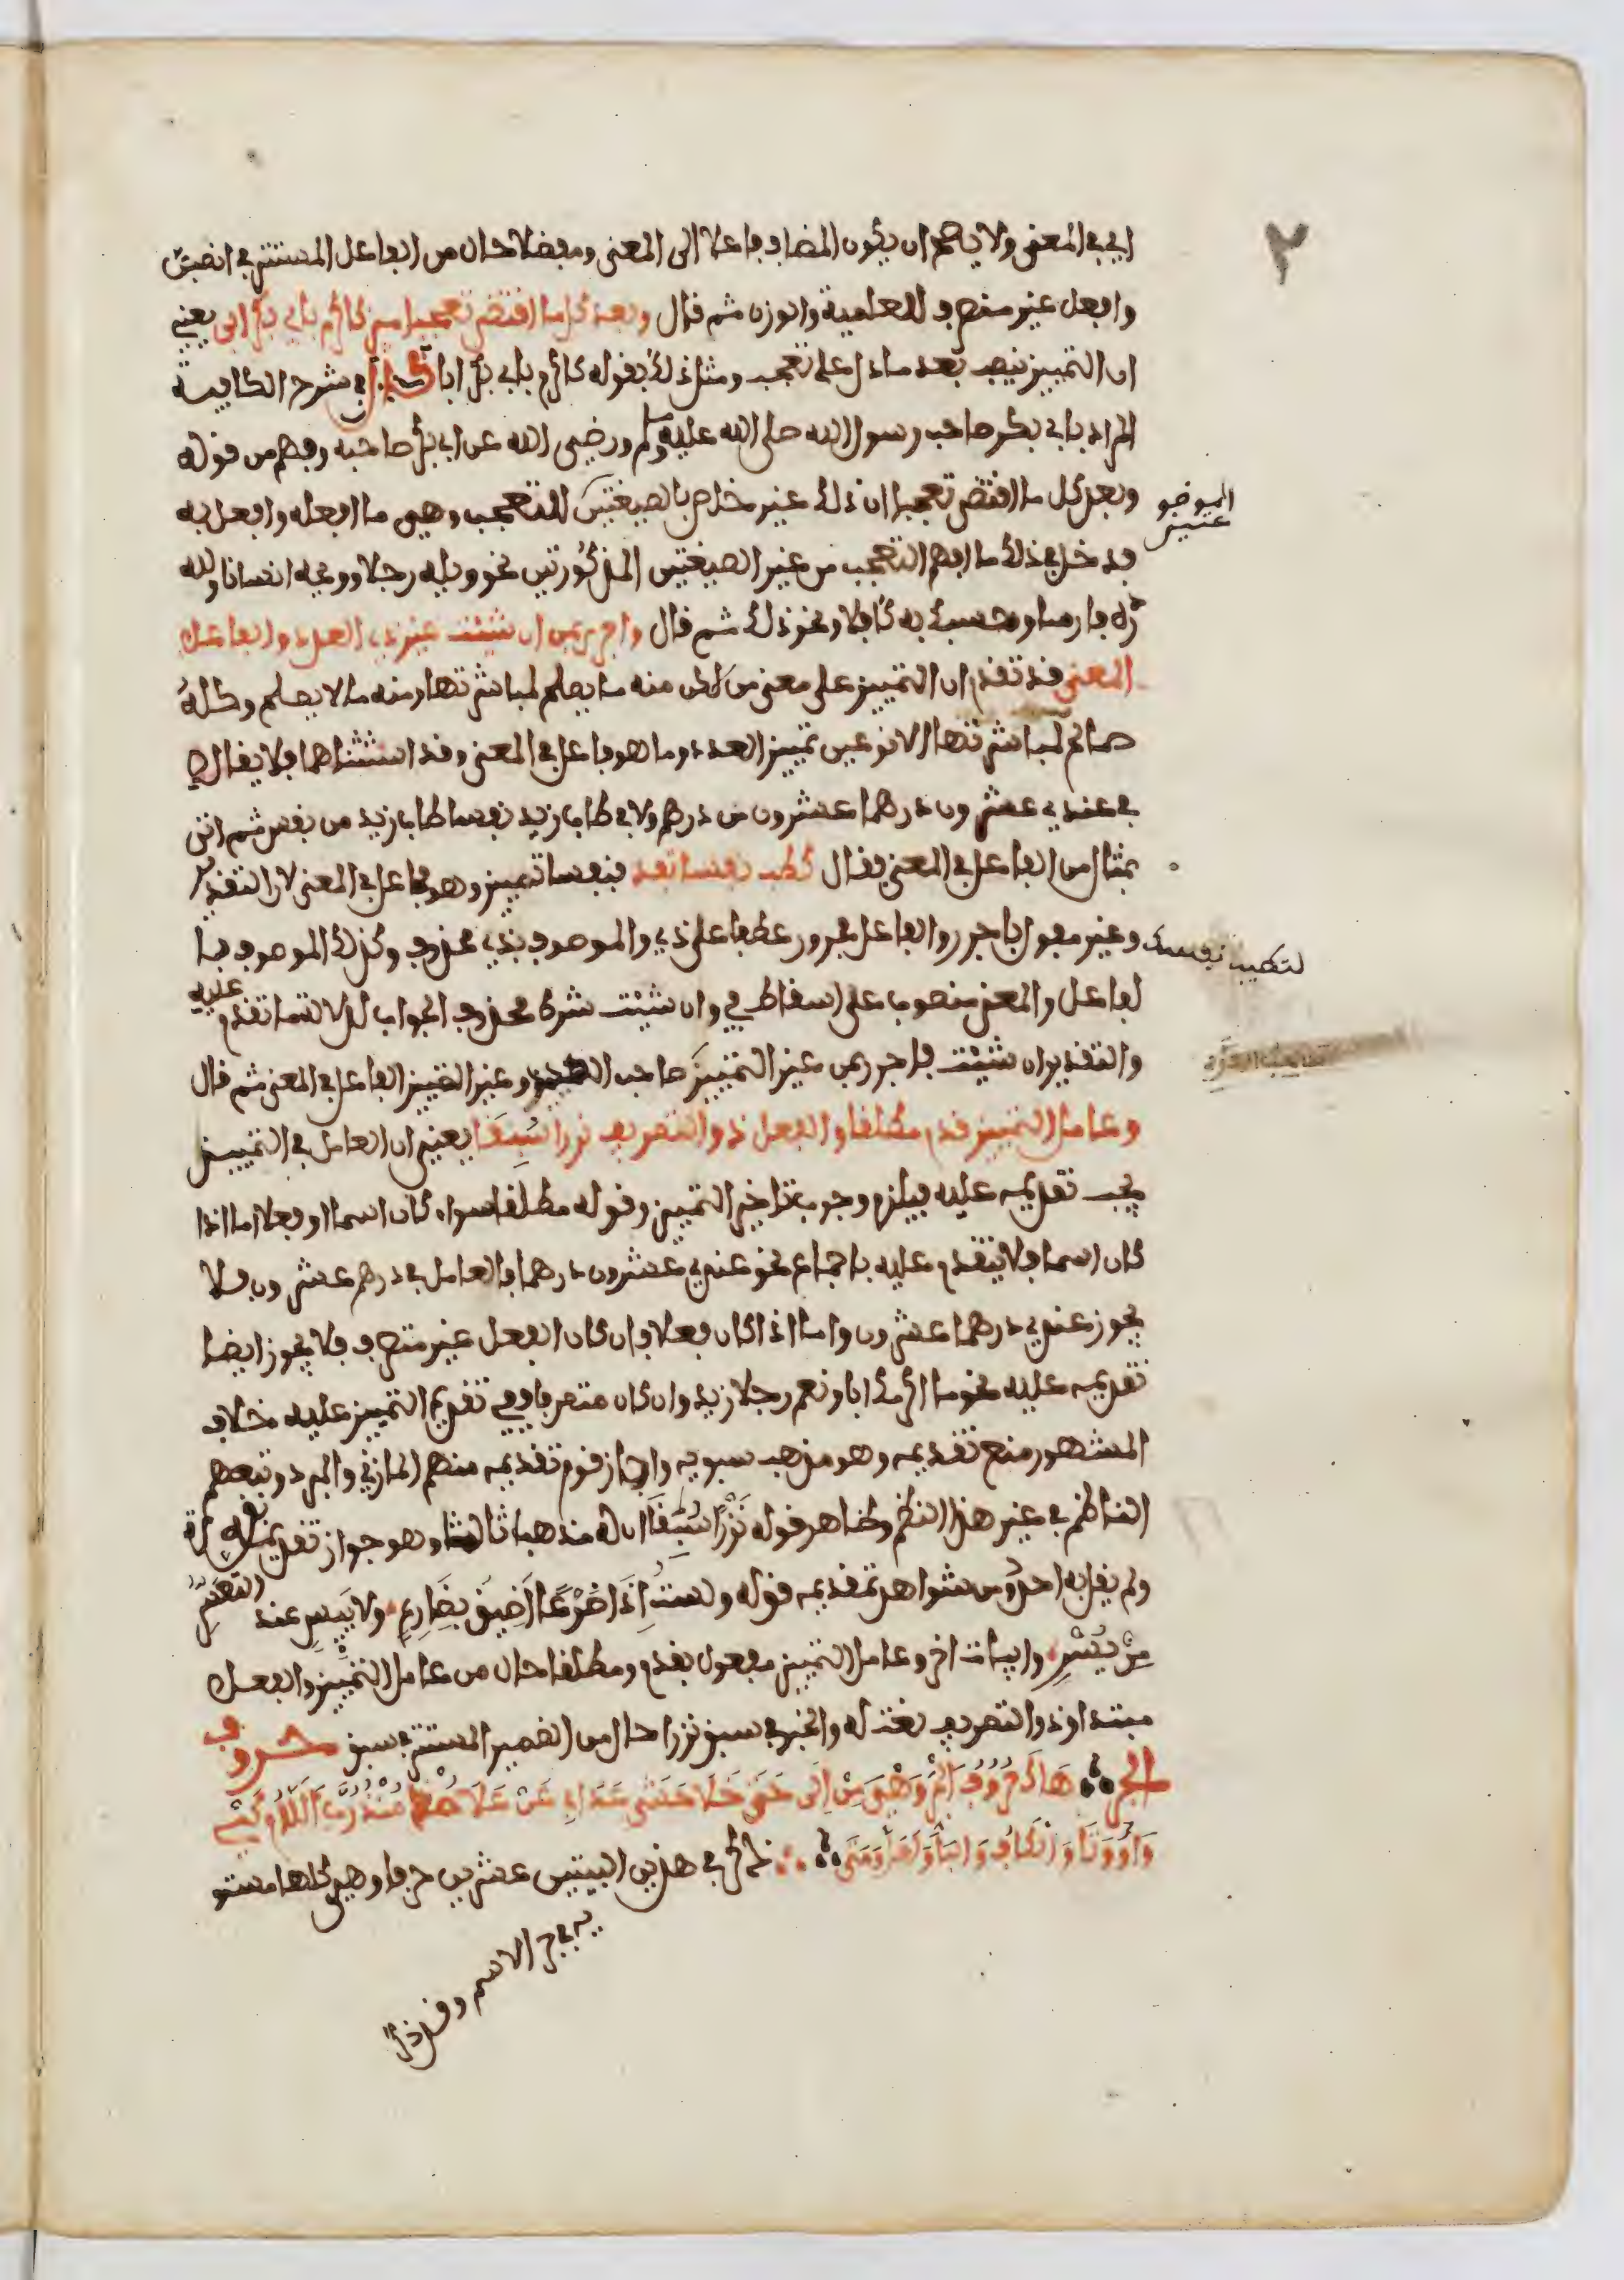 اي في المعنى ولا يصح ان يكون المضاف فاعلا الى المعنى ومفضلا حال من الفاعل المستتر في انصبن
وافعل غير منصرف للعلمية والوزن ثم قال وبعد كل ما اقتضى تعجبا ميز كاكرم بابي بكر ابى يعني
ان التمييز ينصب بعد ما دل على تعجب ومثل ذلك بقوله كاكرم بابي بكر ابا قال في شرح الكافية
المراد بابي بكر صاحب رسول الله صلى الله عليه وسلم ورضي الله عن ابي بكر صاحبه وفهم من قوله
وبعد كل ما اقتضى تعجبا ان ذلك غير خاص بالصيغتين للتعجب وهي ما افعله وافعل به
الموضو
عتين
فدخل في ذلك ما افهم التعجب من غير الصيغتين المذكورتين نحو ويله رجلا وويحه انسانا ولله
دره فارسا وحسبك به كافلا ونحو ذلك ثم قال واجرر بمن ان شئت غير ذي العدد والفاعل
المعنى قد تقدم ان التمييز على معنى من لكن منه ما يصلح لمباشرتها ومنه ما لا يصلح وكله
صالح لمباشرتها الا نوعين تمييز العدد وما هو فاعل في المعنى وقد استثناهما فلا يقال
في عندي عشرون درهما عشرون من درهم ولا في طاب زيد نفسا طاب زيد من نفس ثم اتى
بمثال من الفاعل في المعنى فقال كطب نفسا تفد فنفسا تمييز وهو فاعل في المعنى لان التقدير
لتطب نفسك
وغير مفعول باجرر والفاعل مجرور عطفا على ذي والموصوف بذي محذوف وكذلك الموصوف با
لفاعل والمعنى منصوب على اسقاط في وان شئت شرط محذوف الجواب لدلالة ما تقدم عليه
والتقدير ان شئت فاجرر بمن غير التمييز صاحب العدد وغير التمييز الفاعل في المعنى ثم قال
وعامل التمييز قدم مطلقا والفعل ذو التصريف نزرا سُبِقَا يعني ان العامل في التمييز
يجب تقديمه عليه فيلزم وجوب تاخير التمييز وقوله مطلقا سواء كان اسما او فعلا اما اذا
كان اسما فلا يتقدم عليه باجماع نحو عندي عشرون درهما فالعامل في درهم عشرون فلا
يجوز عندي درهما عشرون واما اذا كان فعلا فان كان الفعل غير متصرف فلا يجوز ايضا
تقديمه عليه نحو ما اكرمك ابا ونعم رجلا زيد وان كان متصرفا ففي تقديم التمييز عليه خلاف
المشهور منع تقديمه وهو مذهب سبويه واجاز قوم تقديمه منهم المازني والمبرد وتبعهم
الناظم في غير هذا النظم وظاهر قوله نَزْرًا سُبِقَا ان له مذهبا ثالثا وهو جواز تقديمه بقلة
ولم يقل به احد ومن شواهد تقديمه قوله ولست اذا ذرعا اضيق بضارع ولا ييس عند التعسر
من يسر وابيات اخر وعامل التمييز مفعول بقدم ومطلقا حال من عامل التمييز والفعل
مبتدا وذو التصريف نعت له والخبر في سبق نزرا حال من الضمير المستتر في سبق حروف
الجر هَاكَ حُرُوفَ الجَرِّ وَهْيَ مِنْ إِلَى حَتَّى خَلَا حَاشَى عَدَا فِي عَنْ عَلَى مُذْ مُنْذُ رُبَّ اللَّامُ كَيْ
وَاوٌ وَتَا وَالْكَافُ وَالبَا وَلَعَلَّ وَمَتَى ذكر في هذين البيتين عشرين حرفا وهي كلها مستو
ية في جر الاسم وقد ذكر